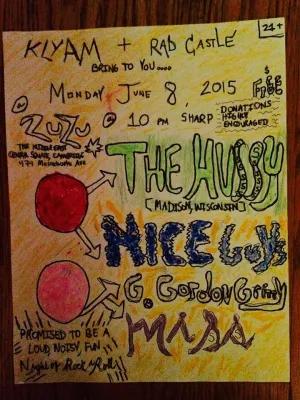 21+
KLYAM + RAD CASTLE
BRING TO YOU....
MONDAY JUNE 8, 2015
$ FREE
DONATIONS
HIGHLY
ENCOURAGED!
@ ZUZU
@ 10 PM SHARP
THE MIDDLE EAST
CENTRAL SQUARE, CAMBRIDGE
474 Massachusetts Ave
THE HUSSY
[MADISON, WISCONSIN]
NICE GUYS
G. GORDON GRITTY
MISS
PROMISED TO BE A
LOUD, NOISY, FUN
Night of Rock & Roll!